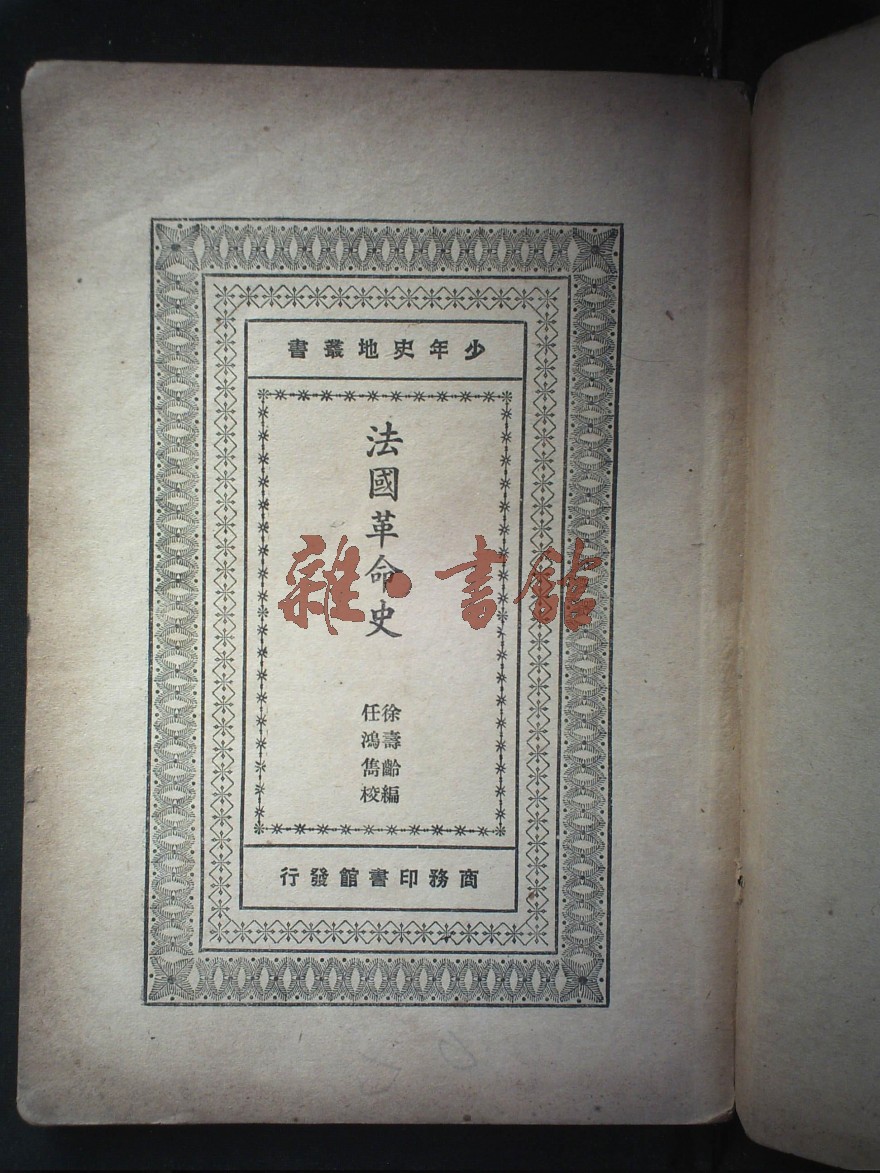 少年史地叢書
法國革命史
徐壽齡編
任鴻雋校
商務印書館發行
雜·書館